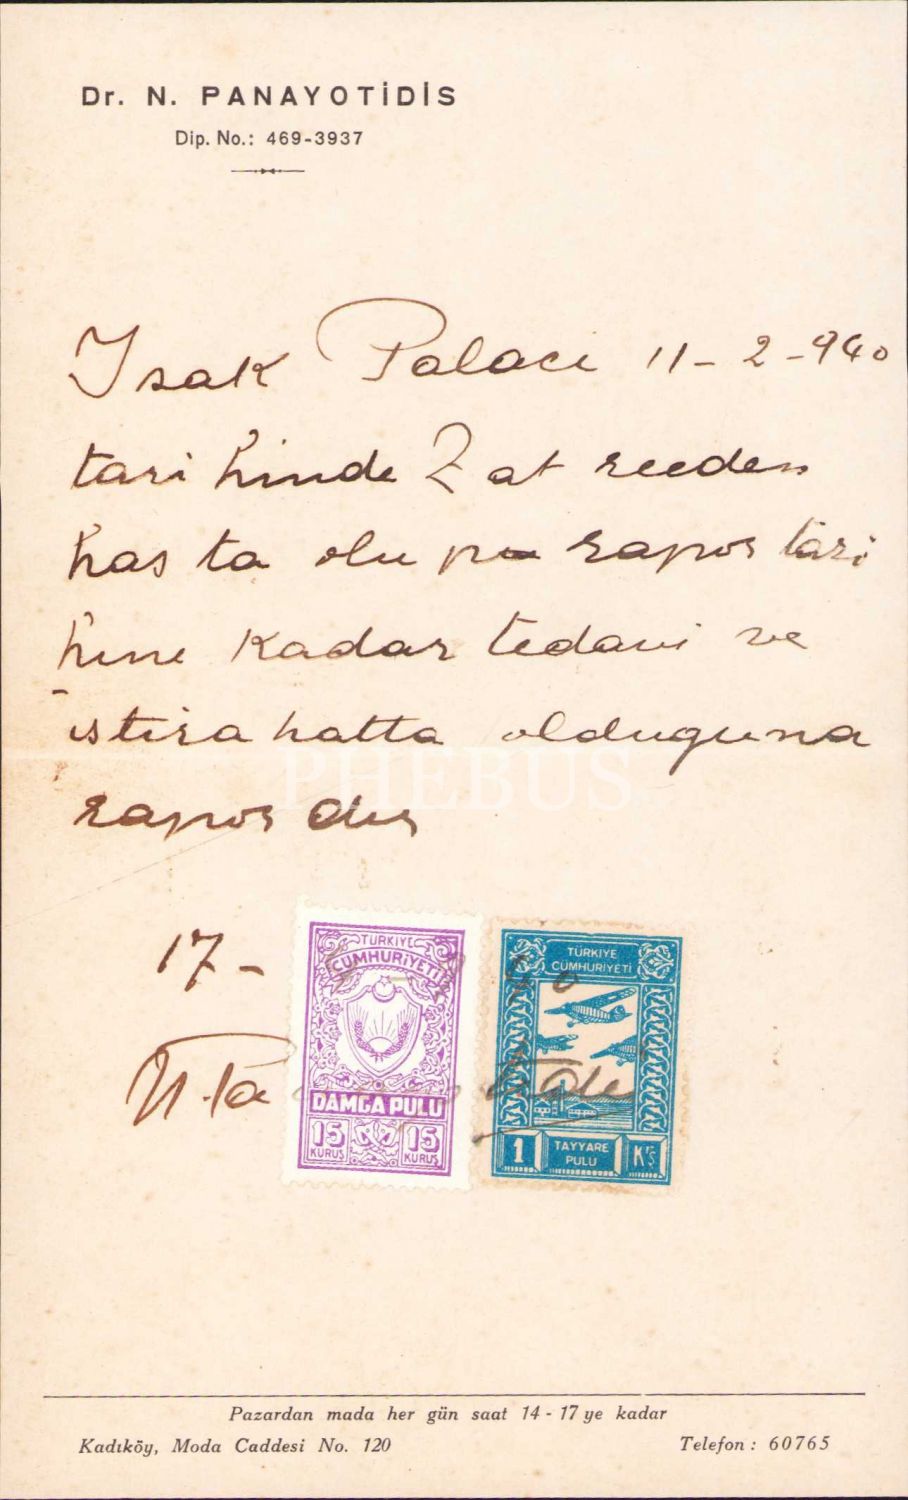 Dr. N. PANAYOTİDİS
Dip. No.: 469-3937
Isak Palaci 11-2-940
tari hinde
has ta olup rapor tari
hine kadar tedavi ve
istirahatta olduguna
rapor dur
17-
TÜRKİYE
CÜMHURİYETİ
DAMGA PULU
15 15
KURUŞ KURUŞ
TÜRKİYE
CÜMHURİYETİ
1 TAYYARE PULU K'Ş
PHEBUS
Pazardan mada her gün saat 14 - 17 ye kadar
Kadıköy, Moda Caddesi No. 120
Telefon : 60765